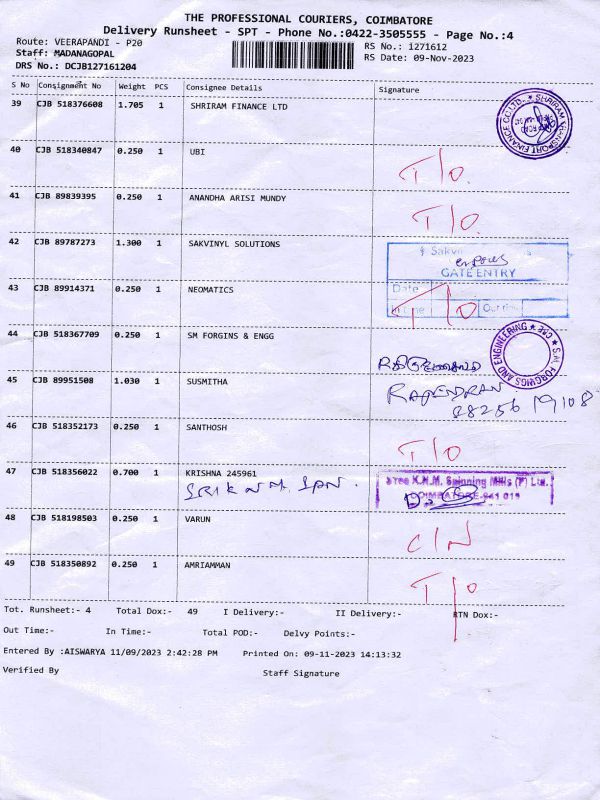 THE PROFESSIONAL COURIERS, COIMBATORE
Delivery Runsheet - SPT - Phone No.:0422-3505555 - Page No.:4
Route: VEERAPANDI - P20
RS No.: 1271612
Staff: MADANAGOPAL
RS Date: 09-Nov-2023
DRS No.: DCJB127161204
S No Consignment No Weight PCS Consignee Details Signature
39 CJB 518376608 1.705 1 SHRIRAM FINANCE LTD
40 CJB 518340847 0.250 1 UBI
T/O.
41 CJB 89839395 0.250 1 ANANDHA ARISI MUNDY
T/O.
42 CJB 89787273 1.300 1 SAKVINYL SOLUTIONS
GATE ENTRY
Date
43 CJB 89914371 0.250 1 NEOMATICS
T/O
In Time
44 CJB 518367709 0.250 1 SM FORGINS & ENGG
S.M. FORGINGS AND ENGINEERING * CBE *
45 CJB 89951508 1.030 1 SUSMITHA
RAJENDRAN
46 CJB 518352173 0.250 1 SANTHOSH
T/O
47 CJB 518356022 0.700 1 KRISHNA 245961
Sree K.N.M. Spinning Mills (P) Ltd.
COIMBATORE-641 019
48 CJB 518198503 0.250 1 VARUN
C/N
49 CJB 518350892 0.250 1 AMRIAMMAN
T/O
Tot. Runsheet:- 4 Total Dox:- 49 I Delivery:- II Delivery:- RTN Dox:-
Out Time:- In Time:- Total POD:- Delvy Points:-
Entered By :AISWARYA 11/09/2023 2:42:28 PM Printed On: 09-11-2023 14:13:32
Verified By Staff Signature